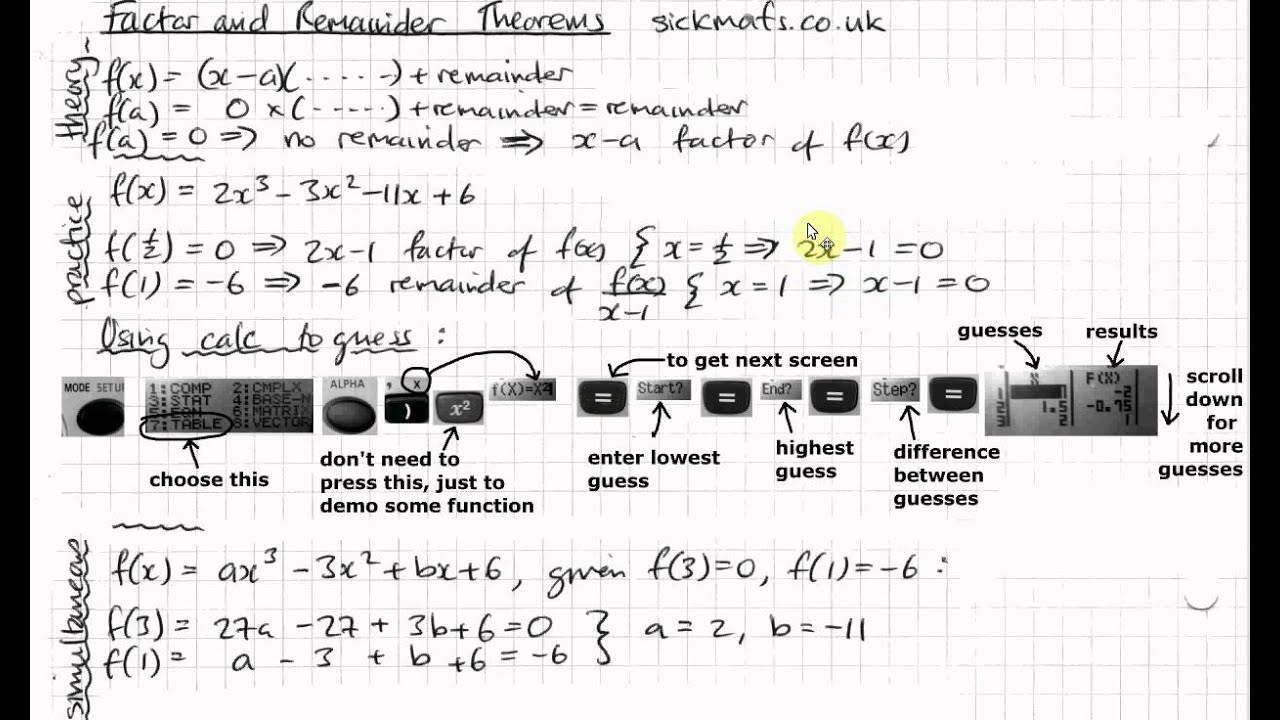 Factor and Remainder Theorems sickmafs.co.uk
theory
f(x) = (x-a)(.....) + remainder
f(a) = 0 × (.....) + remainder = remainder
f(a) = 0 ⇒ no remainder ⇒ x-a factor of f(x)
practice
f(x) = 2x³ - 3x² - 11x + 6
f(½) = 0 ⇒ 2x-1 factor of f(x) { x = ½ ⇒ 2x-1 = 0
f(1) = -6 ⇒ -6 remainder of f(x)/x-1 { x = 1 ⇒ x-1 = 0
Using calc to guess :
to get next screen
guesses
results
MODE SETU
1:COMP 2:CMPLX
3:STAT 4:BASE-N
5:EQN 6:MATRIX
7:TABLE 8:VECTOR
ALPHA
, x
)
x²
f(X)=X²
=
Start?
=
End?
=
Step?
=
X F(X)
1 1 -2
2 1.5 -0.75
3 2 1
scroll
down
for
more
guesses
choose this
don't need to
press this, just to
demo some function
enter lowest
guess
highest
guess
difference
between
guesses
simultaneous
f(x) = ax³ - 3x² + bx + 6, given f(3)=0, f(1)=-6 :
f(3) = 27a - 27 + 3b + 6 = 0 } a = 2, b = -11
f(1) = a - 3 + b + 6 = -6